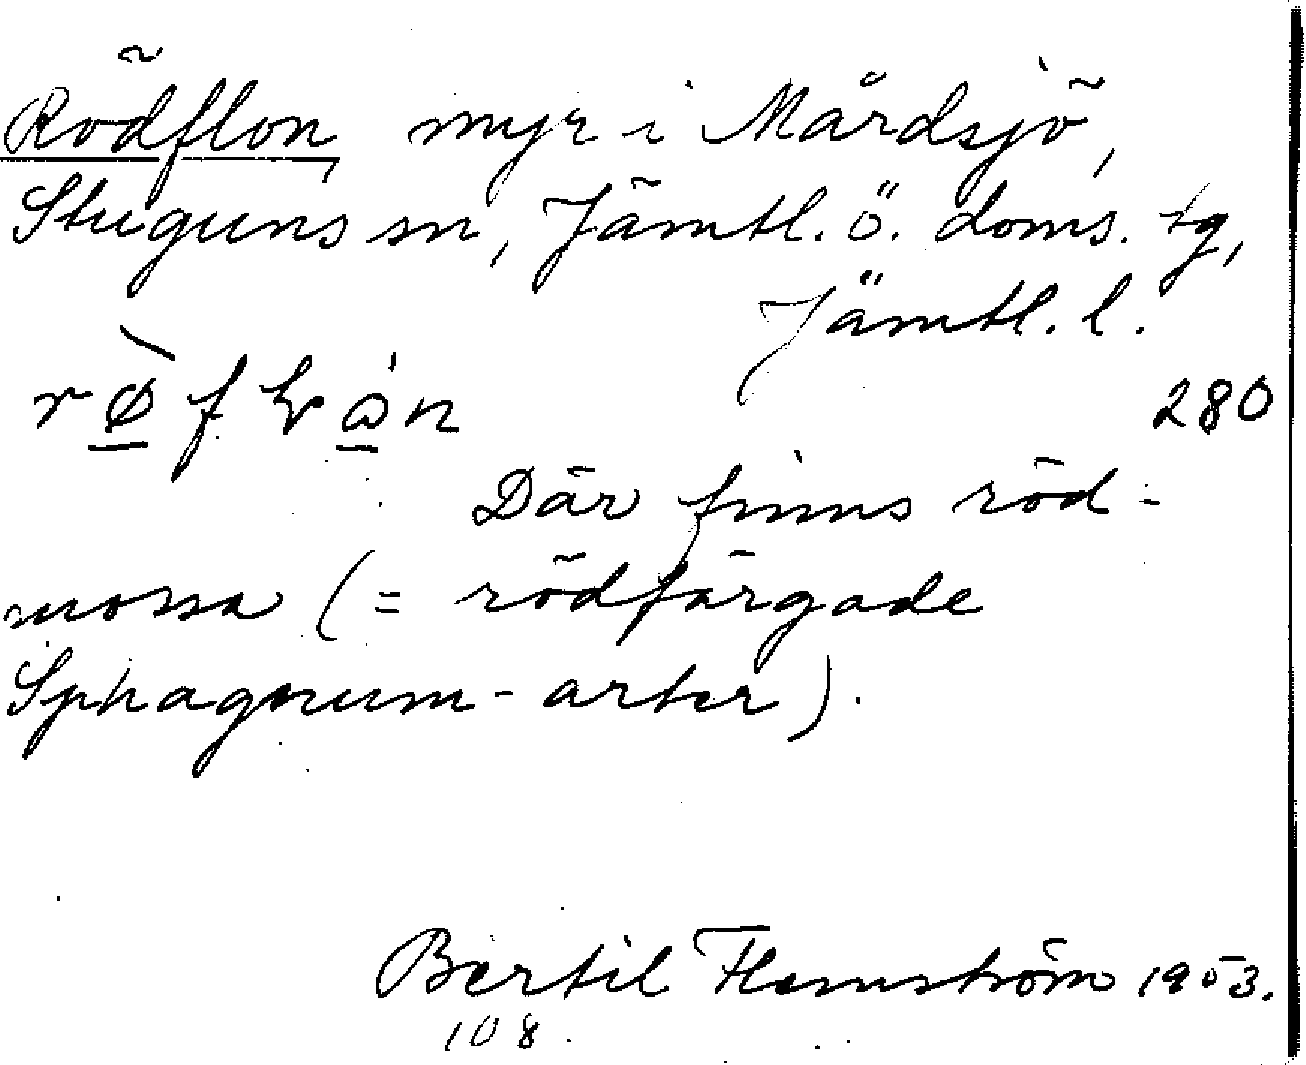 Rödflon, myr i Mårdsjö,
Stuguns sn, Jämtl. ö. doms. tg,
Jämtl. l.
280
Där finns röd-
mossa (= rödfärgade
Sphagnum-arter).
Bertil Flemström 1953.
108.